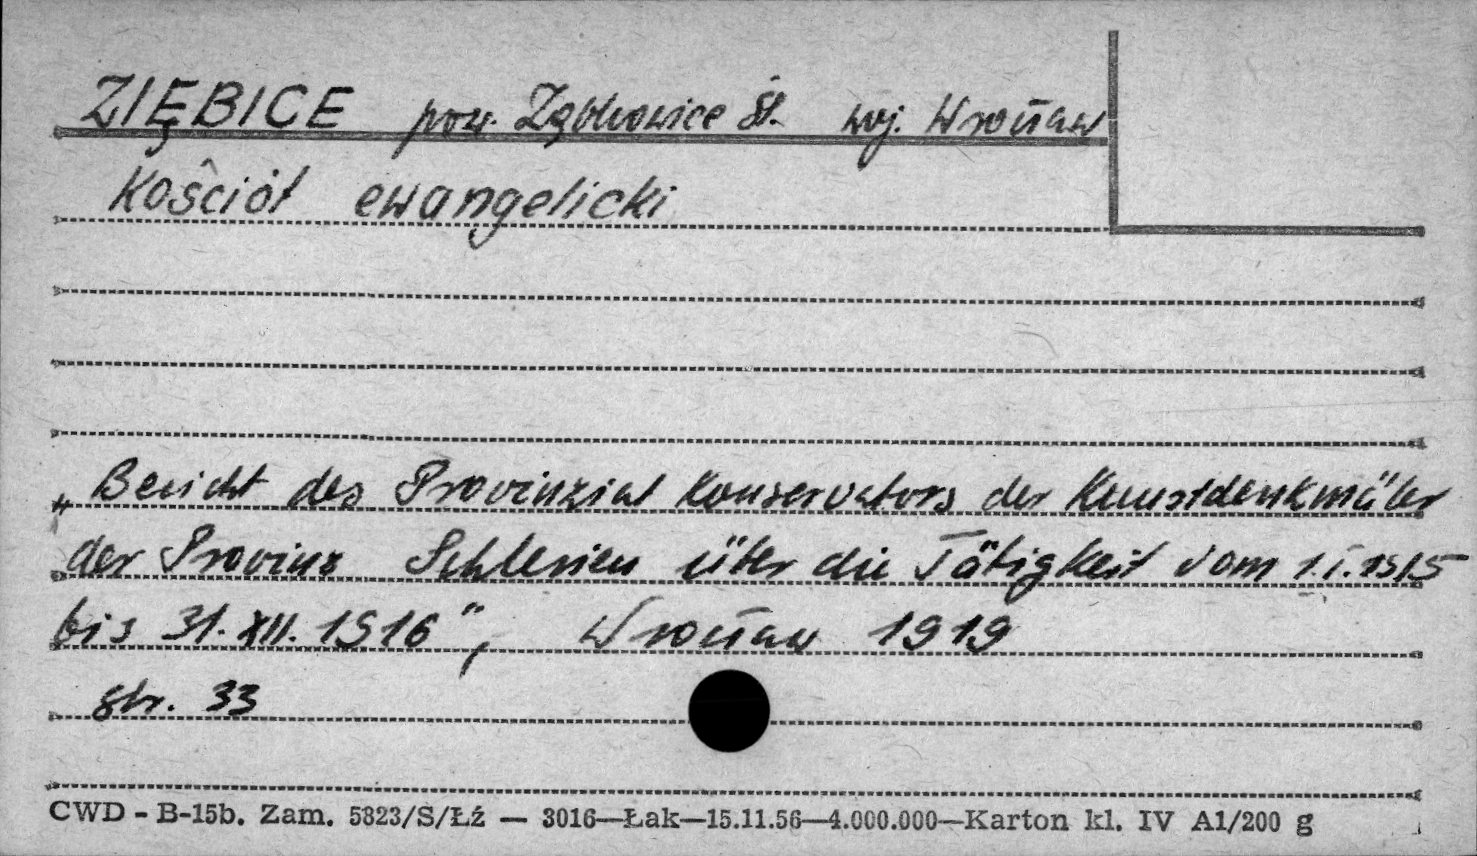 ZIĘBICE pow. Ząbkowice Śl. woj. Wrocław
Kościół ewangelicki
„Bericht des Provinzial Konservators der Kunstdenkmäler
der Provinz Schlesien über die Tätigkeit vom 1.I.1915
bis 31.XII.1916", Wrocław 1919
str. 33
CWD - B-15b. Zam. 5823/S/Łź — 3016—Łak—15.11.56—4.000.000—Karton kl. IV A1/200 g